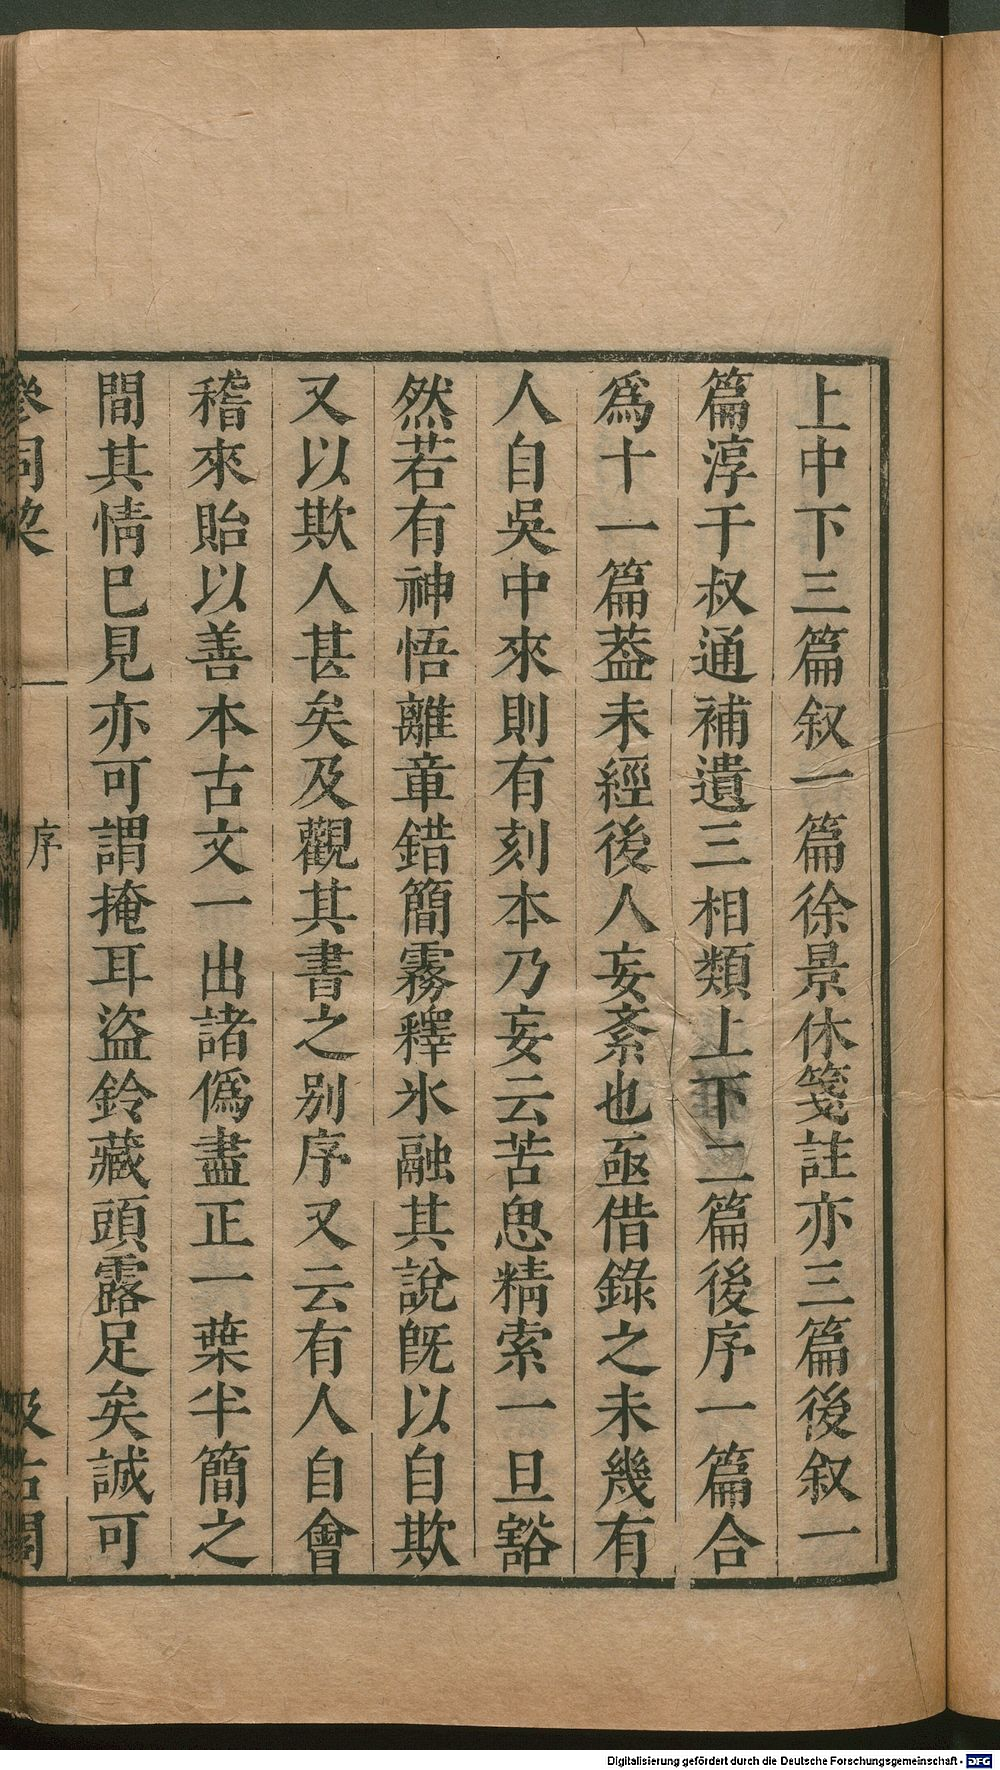 上中下三篇叙一篇徐景休箋註亦三篇後叙一
篇淳于叔通補遺三相類上下二篇後序一篇合
爲十一篇葢未經後人妄紊也亟借錄之未幾有
人自吳中來則有刻本乃妄云苦思精索一旦豁
然若有神悟離章錯簡霧釋氷融其說旣以自欺
又以欺人甚矣及觀其書之别序又云有人自會
稽來貽以善本古文一出諸僞盡正一葉半簡之
間其情巳見亦可謂掩耳盜鈴藏頭露足矣誠可
參同契
一
序
汲古閣
Digitalisierung gefördert durch die Deutsche Forschungsgemeinschaft - DFG